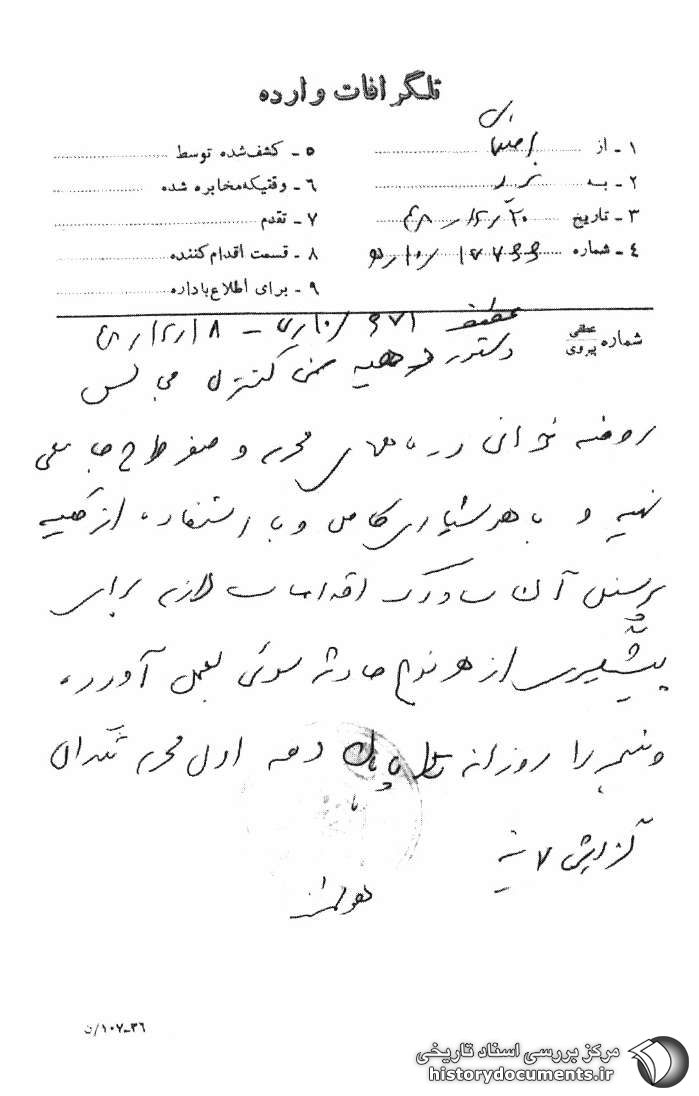 تلگرافات وارده
۱ - از
۲ - به
۳ - تاریخ ۲۰/۱۲/۴۸
۴ - شماره
۵ - کشف‌شده توسط
۶ - وقتیکه مخابره شده
۷ - تقدم
۸ - قسمت اقدام کننده
۹ - برای اطلاع باداره
شماره عطفی پیروی
عطف ۱۸/۱۲/۴۸
دستور فرمایید ضمن کنترل مجالس
روضه خوانی در ماههای محرم و صفر طرح جامعی
تهیه و با هوشیاری کامل و با استفاده از کلیه
پرسنل آن ساواک اقدامات لازم برای
پیشگیری از هر نوع حادثه سوئی بعمل آورده
و نتیجه را روزانه تا پایان دهه اول محرم تلگرافی
گزارش نمایند
۳۶-۱۰۷/ن
مرکز بررسی اسناد تاریخی
historydocuments.ir